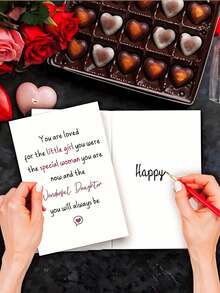 You are loved
for the little girl you were
the special woman you are
now and the
Wonderful Daughter
you will always be
Happy